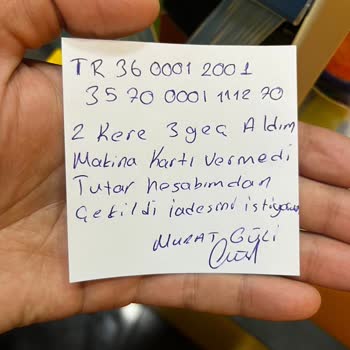 TR 36 0001 2001
35 70 0001 1112 70
2 Kere 3geç Aldım
Makina Kartı Vermedi
Tutar hesabımdan
Çekildi iadesini istiyorum
MURAT GÜLİ